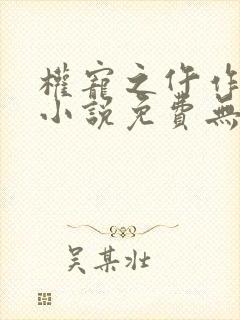 權寵之仵作
小說免費無
吳某壯